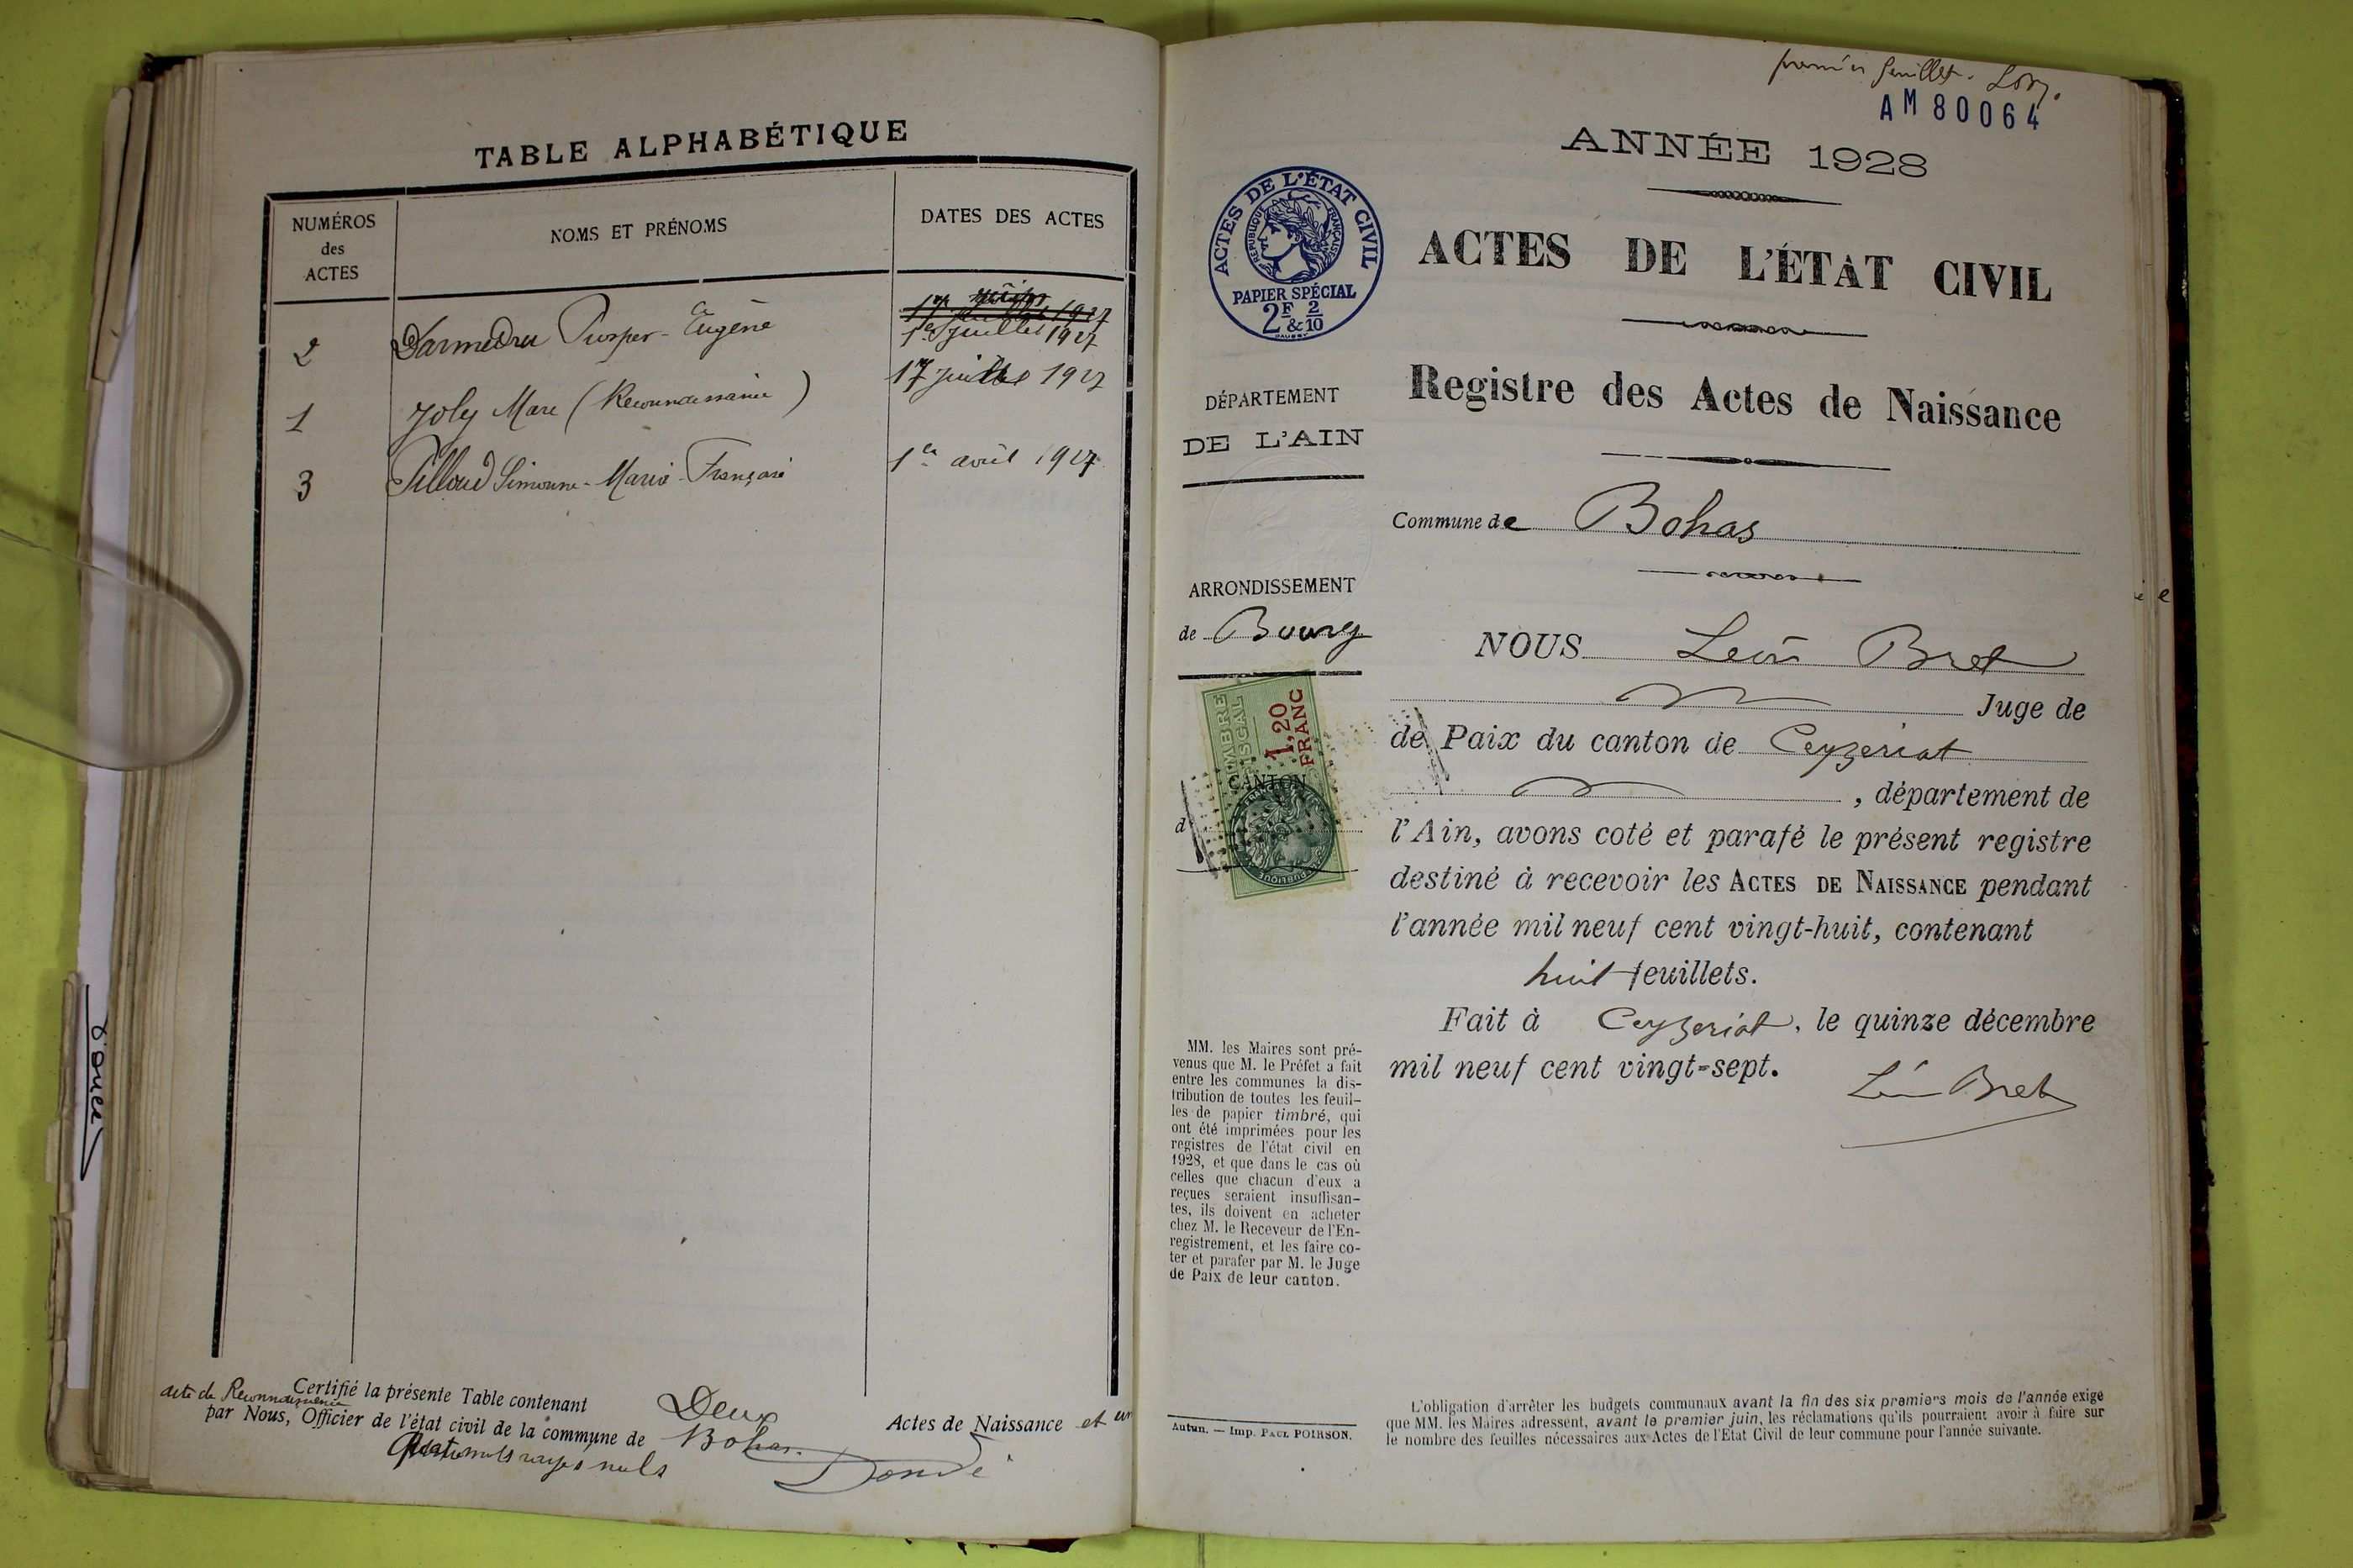 TABLE ALPHABÉTIQUE
NUMÉROS
des
ACTES
NOMS ET PRÉNOMS
DATES DES ACTES
2 Darmedru Prosper-Eugène 1er juillet 1927
1 Joly Marc (Reconnaissance) 17 juillet 1927
3 Pilloud Simonne-Marie-Françoise 1er avril 1927
Certifié la présente Table contenant Deux Actes de Naissance et un
acte de Reconnaissance
par Nous, Officier de l'état civil de la commune de Bohas.
Quatre mots rayés nuls
premier feuillet.
AM 80064
ANNÉE 1928
ACTES DE L'ÉTAT CIVIL
RÉPUBLIQUE FRANÇAISE
PAPIER SPÉCIAL
2F & 2/10
ACTES DE L'ÉTAT CIVIL
Registre des Actes de Naissance
DÉPARTEMENT
DE L'AIN
Commune de Bohas
ARRONDISSEMENT
de Bourg
TIMBRE
FISCAL
1,20
FRANC
CANTON
d
NOUS Léon Bret
Juge de
de Paix du canton de Ceyzeriat
, département de
l'Ain, avons coté et parafé le présent registre
destiné à recevoir les ACTES DE NAISSANCE pendant
l'année mil neuf cent vingt-huit, contenant
huit feuillets.
Fait à Ceyzeriat, le quinze décembre
mil neuf cent vingt-sept.
Léon Bret
MM. les Maires sont pré-
venus que M. le Préfet a fait
entre les communes la dis-
tribution de toutes les feuil-
les de papier timbré, qui
ont été imprimées pour les
registres de l'état civil en
1928, et que dans le cas où
celles que chacun d'eux a
reçues seraient insuffisan-
tes, ils doivent en acheter
chez M. le Receveur de l'En-
registrement, et les faire co-
ter et parafer par M. le Juge
de Paix de leur canton.
Autun. — Imp. PAUL POIRSON.
L'obligation d'arrêter les budgets communaux avant la fin des six premiers mois de l'année exige
que MM. les Maires adressent, avant le premier juin, les réclamations qu'ils pourraient avoir à faire sur
le nombre des feuilles nécessaires aux Actes de l'Etat Civil de leur commune pour l'année suivante.